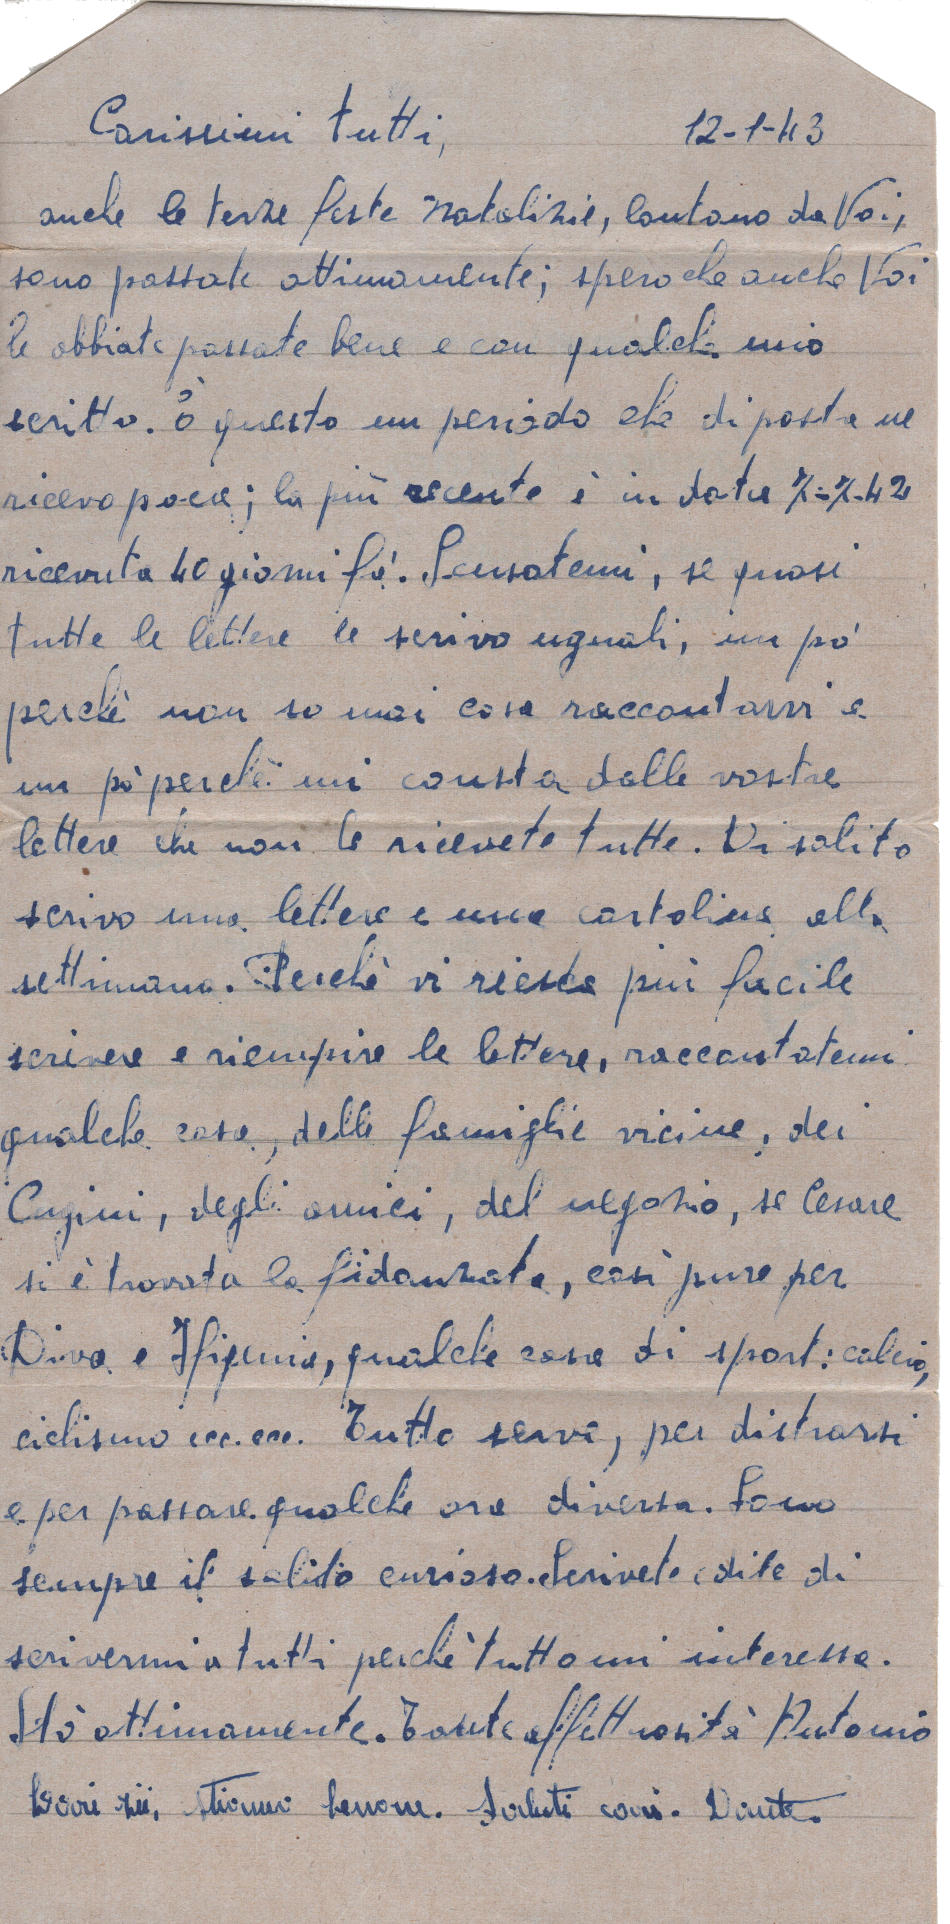 Carissimi tutti, 12-1-43
anche le terze feste natalizie, lontano da Voi,
sono passate ottimamente; spero che anche Voi
le abbiate passate bene e con qualche mio
scritto. È questo un periodo che di posta ne
ricevo poca; la più recente è in data 7-7-42
ricevuta 40 giorni fà. Scusatemi, se quasi
tutte le lettere le scrivo uguali, un pò
perchè non so mai cosa raccontarvi e
un pò perchè mi consta dalle vostre
lettere che non le ricevete tutte. Di solito
scrivo una lettera e una cartolina alla
settimana. Perchè vi riesca più facile
scrivere e riempire le lettere, raccontatemi
qualche cosa, delle famiglie vicine, dei
Cugini, degli amici, del negozio, se Cesare
si è trovata la fidanzata, così pure per
Diva e Ifigenia, qualche cosa di sport: calcio,
ciclismo ecc. ecc. Tutto serve, per distrarsi
e per passare qualche ora diversa. Sono
sempre il solito curioso. Scrivete e dite di
scrivermi a tutti perchè tutto mi interessa.
Stò ottimamente. Tante affettuosità Antonio
zii, stiamo benone. Saluti cari. Dante.